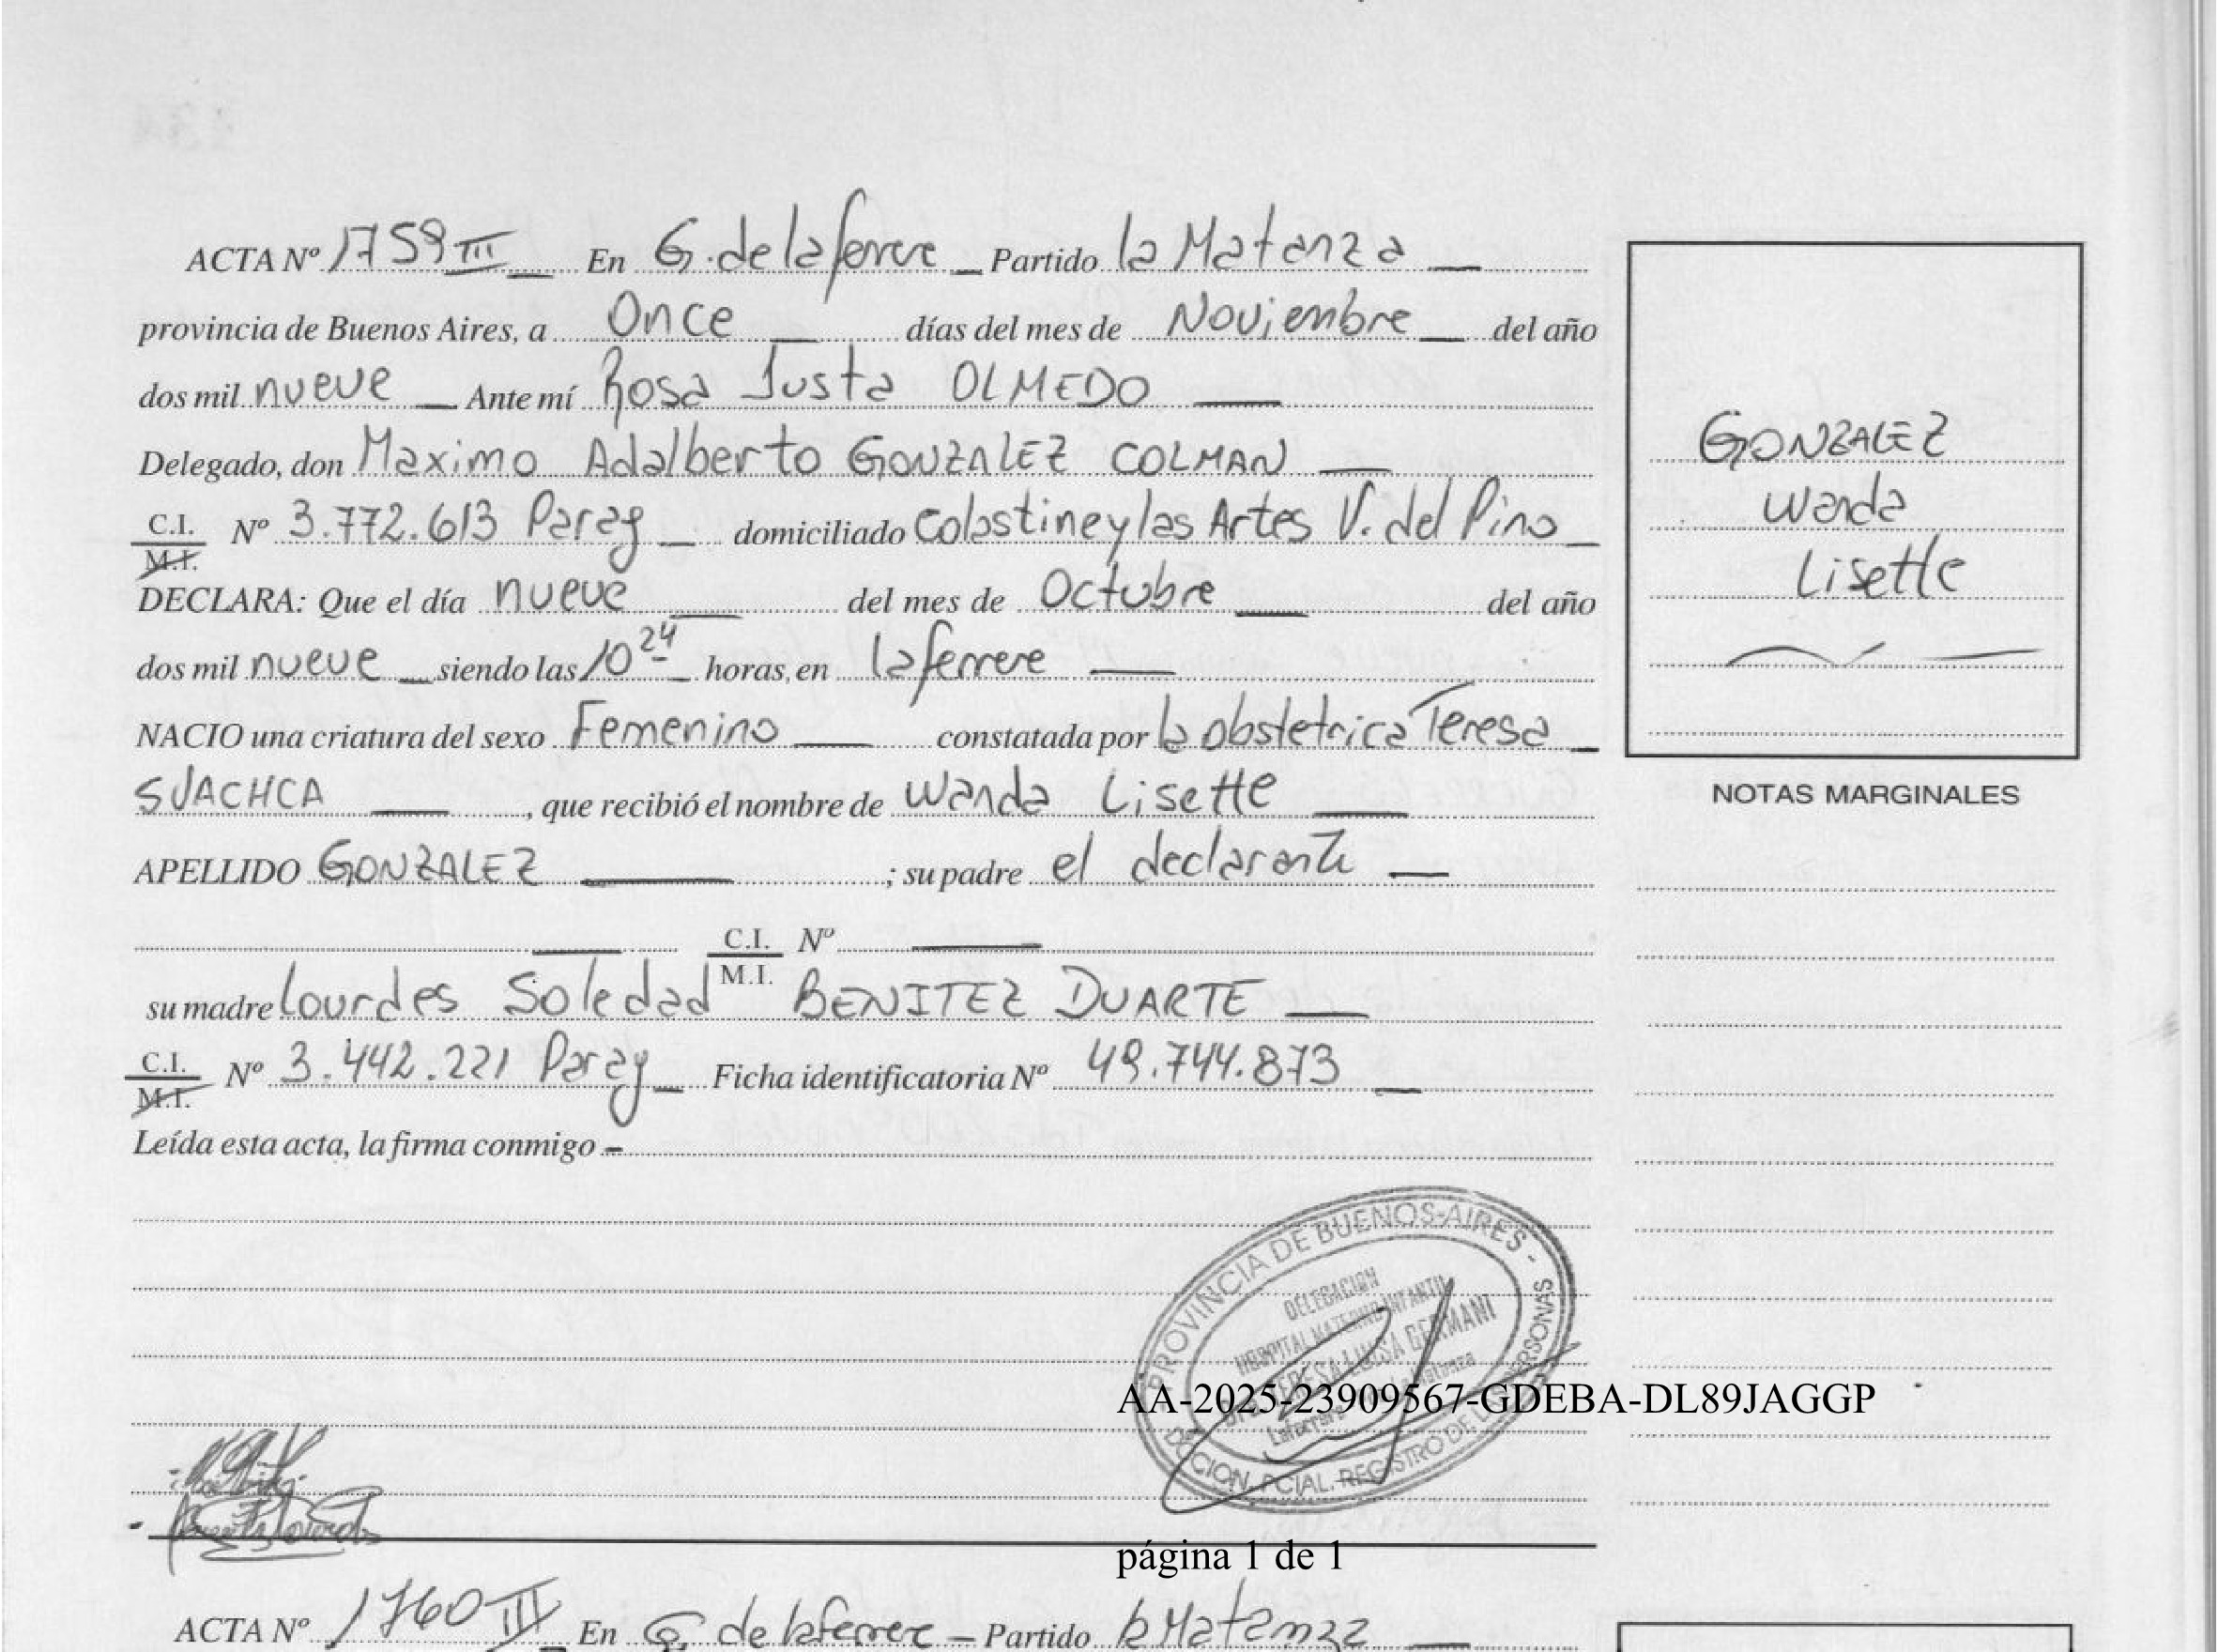 ACTA Nº 1759 III En G. de laferrere Partido la Matanza
provincia de Buenos Aires, a Once días del mes de Noviembre del año
dos mil nueve Ante mí Rosa Justa OLMEDO
Delegado, don Maximo Adalberto GONZALEZ COLMAN
C.I. Nº 3.772.613 Parag domiciliado Colastine y las Artes V. del Pino
M.I.
DECLARA: Que el día nueve del mes de Octubre del año
dos mil nueve siendo las 10 24 horas, en laferrere
NACIO una criatura del sexo Femenino constatada por la obstetrica Teresa
SUACHCA, que recibió el nombre de Wanda Lisette
APELLIDO GONZALEZ ; su padre el declarante
C.I. Nº
M.I.
su madre Lourdes Soledad BENITEZ DUARTE
C.I. Nº 3.442.221 Parag Ficha identificatoria Nº 49.744.873
M.I.
Leída esta acta, la firma conmigo –
GONZALEZ
Wanda
Lisette
NOTAS MARGINALES
PROVINCIA DE BUENOS-AIRES -
DELEGACION
HOSPITAL MATERNO INFANTIL
TERESA LUISA GERMANI
Laferrere Matanza
PCIAL. REGISTRO DE PERSONAS
AA-2025-23909567-GDEBA-DL89JAGGP
página 1 de 1
ACTA Nº 1760 III En G. de laferrere – Partido la Matanza